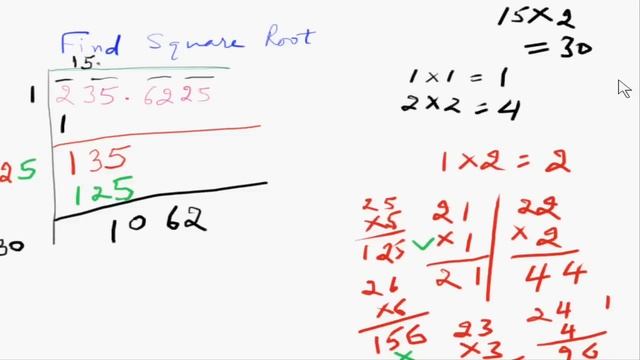 Find Square Root
15.
1 235.6225
1
135
25
125
30 1062
15×2
= 30
1×1 = 1
2×2 = 4
1×2 = 2
25
×5
125
21
×1
21
22
×2
44
26
×6
156
23
×3
24
4
96
1